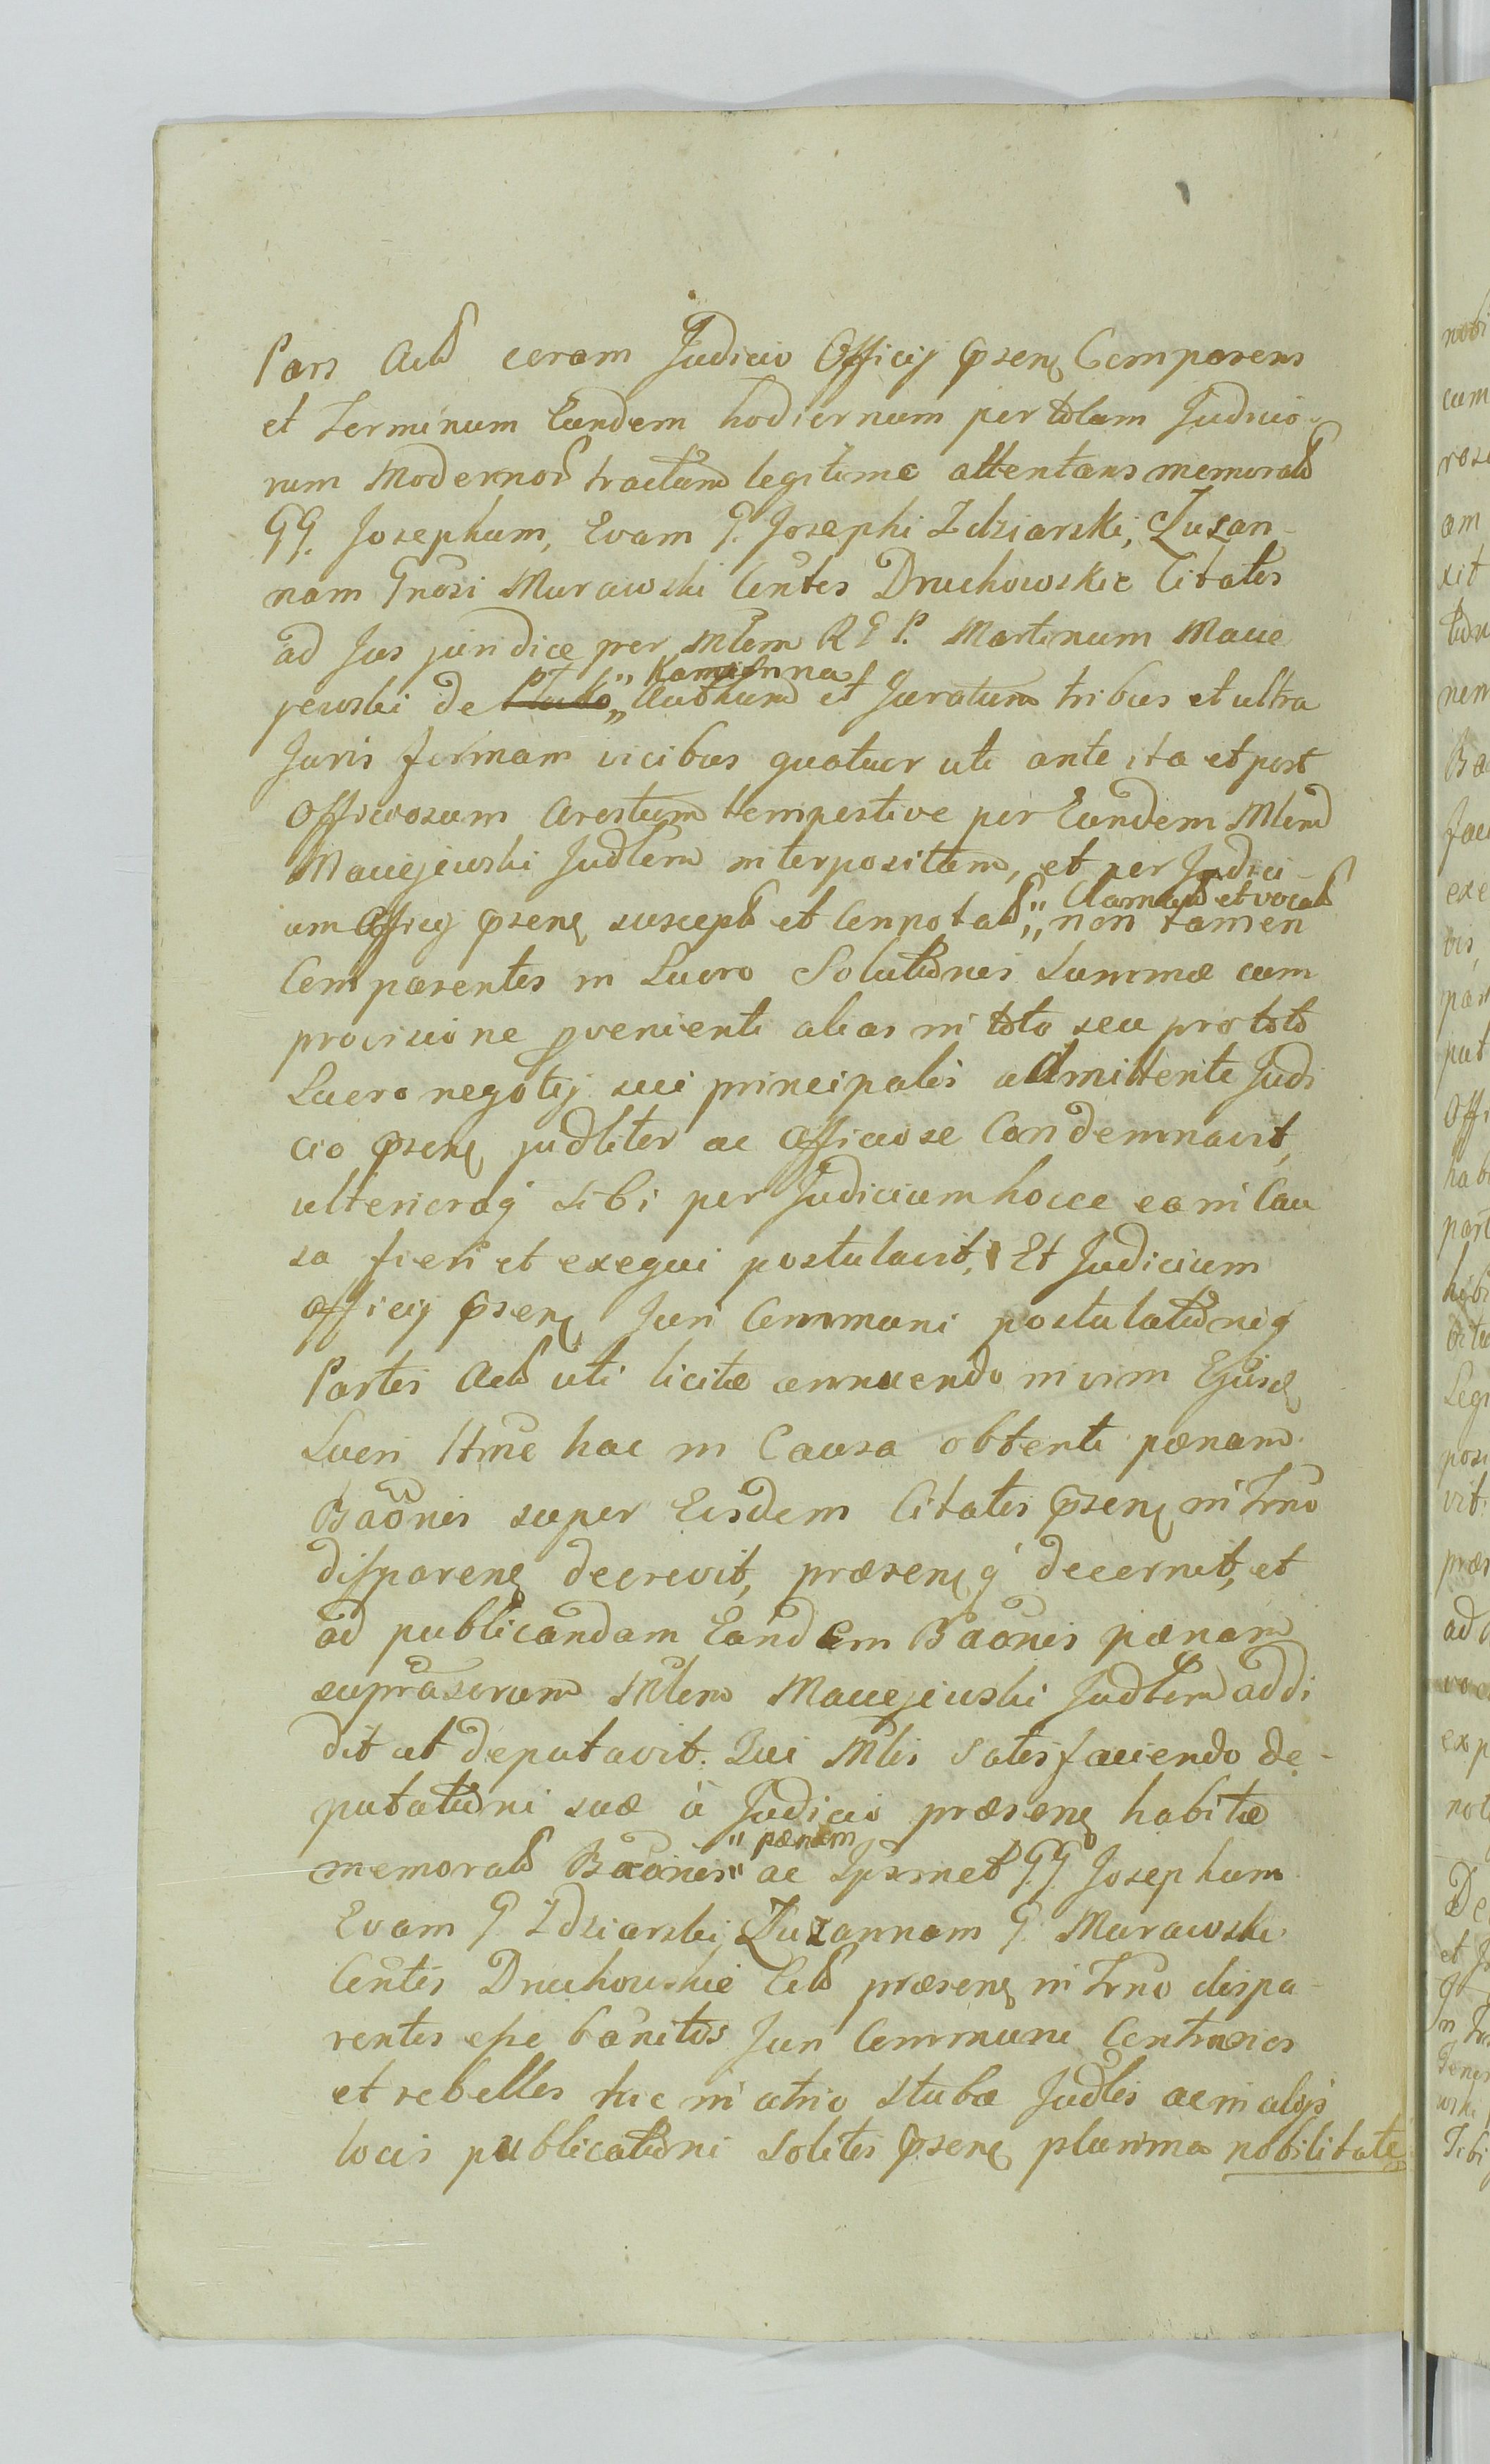 Pars Act coram Judicio Officij psen Comparens
et Terminum Eundem hodiernum per totam Judicio-
rum Modernor tractum legitime attentans memorat
GG. Josephum, Evam G. Josephi Zdziarski, Zuzan-
nam Gnosi Murawski Cntes Druchowskie Citatos
ad Jus juridice per Mlem R G P. Martinum Macie
jewski de Płocko „ Kamienna „ Authum et Juratum tribus et ultra
Juris formam vicibus quatuor uti ante ita et post
Officiosum Arestum tempestive per Eundem Mlem
Maciejewski Judlem interpositum, et per Judici-
um Officij psen suscept et Connotat „ Clamat et vocat „ non tamen
Comparentes in Lucro Solutionis Summæ cum
provisione provenienti alias in toto seu pro toto
Lucro negotij sui principalis admittente Judi
cio psen judliter ac Officiose Condemnavit,
ulterioraq sibi per Judicium hocce ea in Cau
sa fieri et exequi postulavit, Et Judicium
Officij psen Juri Communi postulationiq
Partis Act uti licitæ annuendo in vim Ejusd
Lucri Itme hac in Causa obtenti pœnam
Baonis super Eisdem Citatis psen in Trno
disparen decrevit, præsenq decernit, et
ad publicandam Eandem Baonis pœnam
suprascrum Mlem Maciejewski Judlem addi
dit et deputavit. Qui Mlis Satisfaciendo de-
putationi suæ à Judicio præsen habitæ
memorat Baonis „ pœnam „ ac Ipsmet GG Josephum
Evam G Zdziarski, Zuzannam G. Murawski
Cntes Druchowskie Citt præsen in Trno dispa-
rentes esse banitos Juri Communi Contrarios
et rebelles hic in atrio Stubæ Judlis ac in alijs
locis publicationi Solitis psen plurima nobilitate